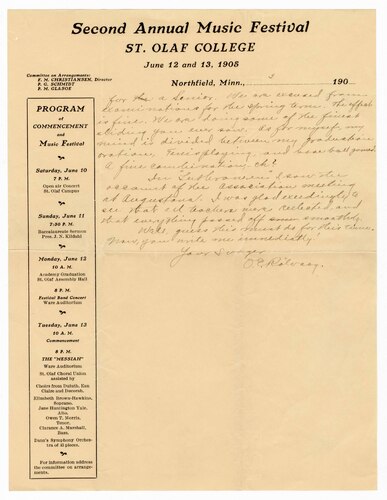 Second Annual Music Festival
ST. OLAF COLLEGE
June 12 and 13, 1905
Committee on Arrangements:
F. M. CHRISTIANSEN, Director
P. G. SCHMIDT
P. M. GLASOE
Northfield, Minn., 3 190
PROGRAM
of
COMMENCEMENT
and
Music Festival
Saturday, June 10
7 P. M.
Open air Concert
St. Olaf Campus
Sunday, June 11
7:30 P. M.
Baccalaureate Sermon
Pres. J. N. Kildahl
Monday, June 12
10 A. M.
Academy Graduation
St. Olaf Assembly Hall
8 P. M.
Festival Band Concert
Ware Auditorium
Tuesday, June 13
10 A. M.
Commencement
8 P. M.
THE "MESSIAH"
Ware Auditorium
St. Olaf Choral Union
assisted by
Choirs from Duluth, Eau
Claire and Decorah,
Elizabeth Brown-Hawkins,
Soprano,
Jane Huntington Yale,
Alto,
Owen T. Morris,
Tenor,
Clarance A. Marshall,
Bass,
Danz's Symphony Orches-
tra of 45 pieces.
For information address
the committee on arrange-
ments.
for the a Senior. We are excused from
examinations for the Spring term. The effect
is fine. We are doing some of the finest
studying you ever saw. As for myself my
mind is divided between my graduation
oration, Tennis playing and base ball games.
A fine combination, eh?
In Lutheraneren I saw the
account of the Association meeting
at Augustana. I was glad exceedingly to
see that old was reelected and
that everything passed off so smoothly.
Well, guess this must do for this time.
Now, you write me immediately
Your
O. E. Rölvaag.